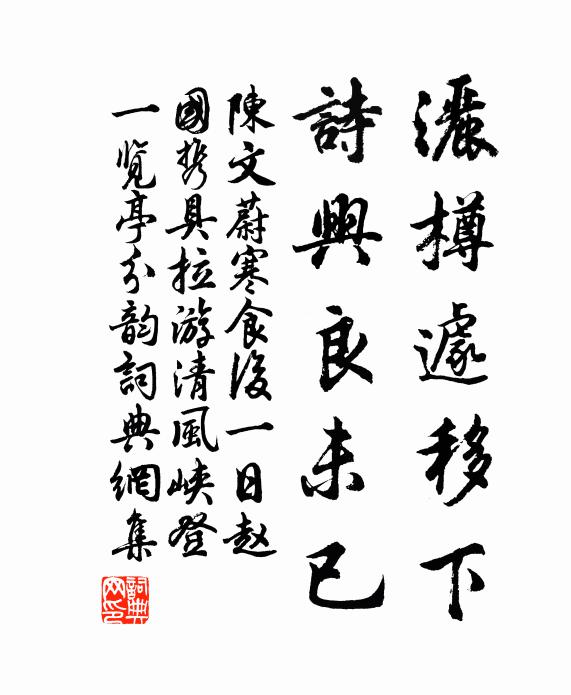 灑樽遽移下
詩興良未已
陳文蔚寒食後一日趙
國携具拉游清風峽登
一覽亭分韵詞典網集
詞典網印